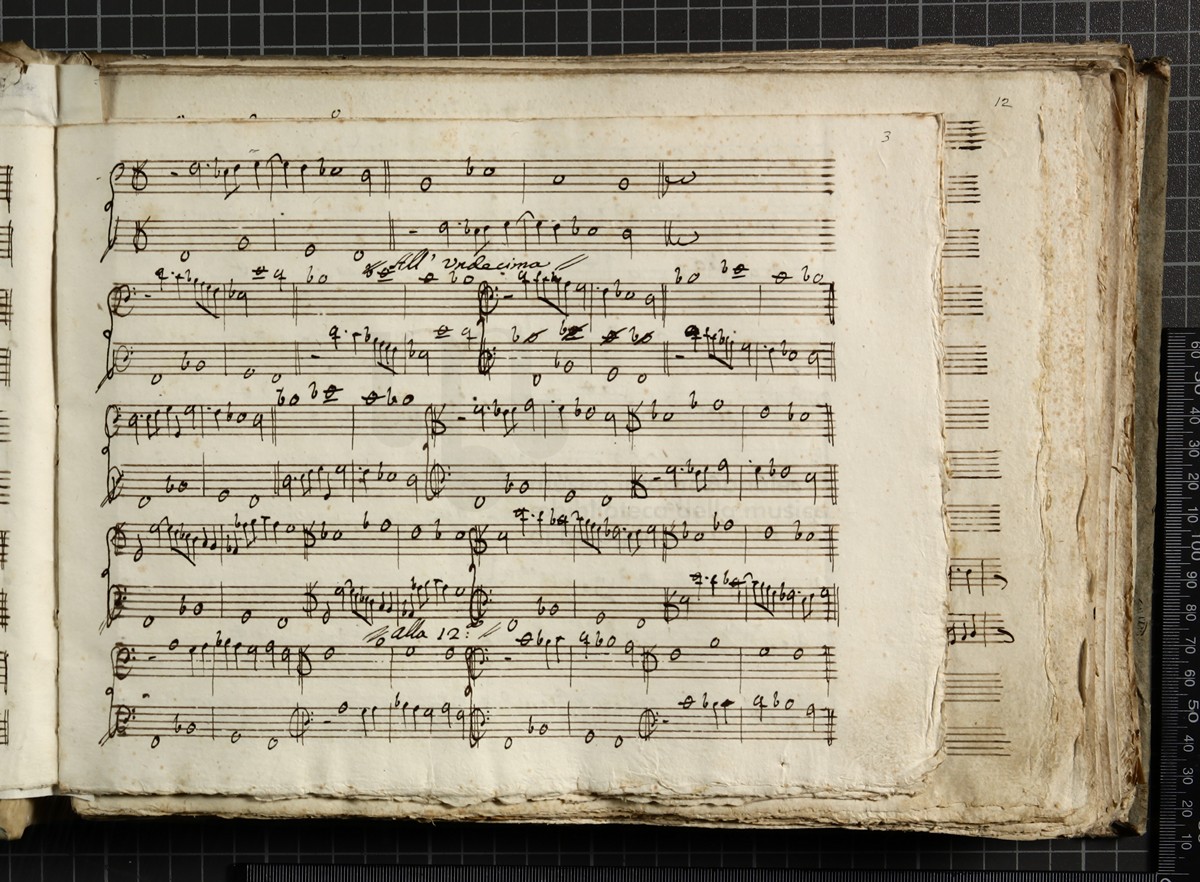 12
3
All' undecima
alla 12:
biblioteca della musica
60 50 40 30 20 10 100 90 80 70 60 50 40 30 20 10